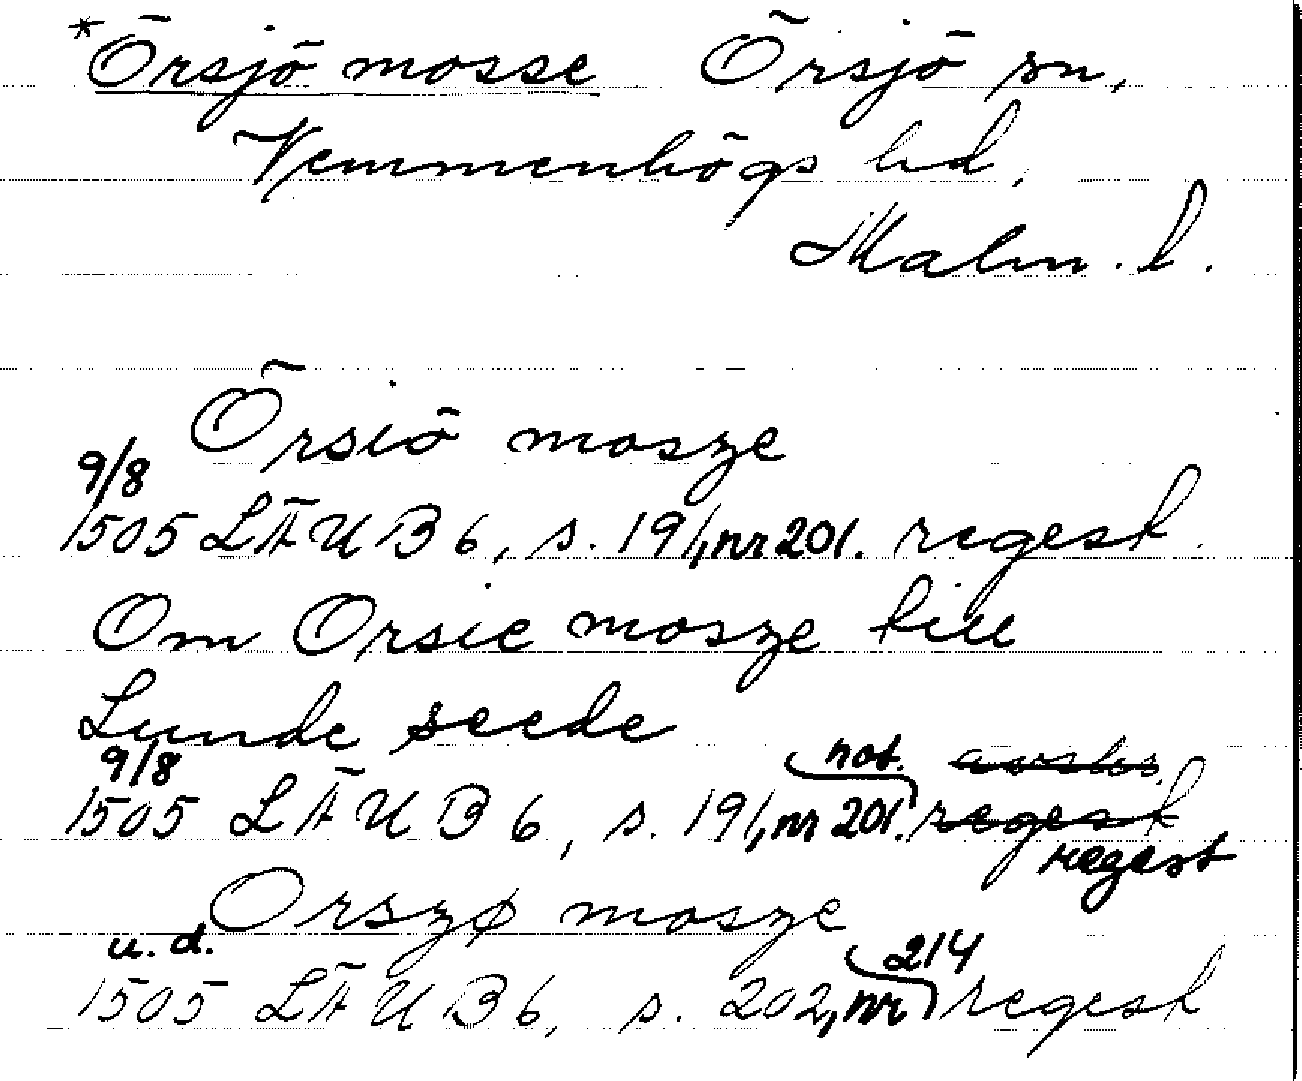 *Örsjö mosse Örsjö sn,
Vemmenhögs hd,
Malm. l.
Örsiö mosze
9/8
1505 LÄUB 6, s. 191, nr 201. regest.
Om Orsie mosze till
Lunde seede
9/8 not. avskr.
1505 LÄUB 6, s. 191, nr 201. regest
regest
Orszø mosze
u. d. 214
1505 LÄUB 6, s. 202, nr regest